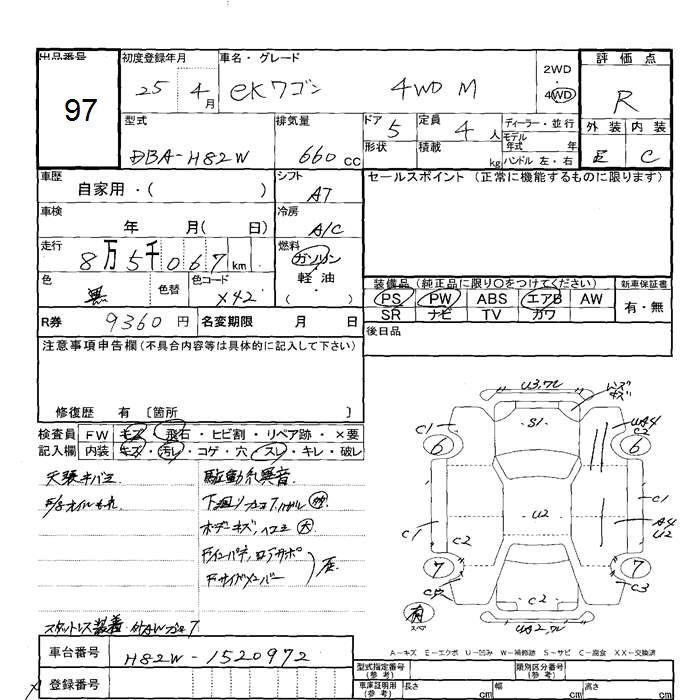 出品番号
97
初度登録年月
25 4月
車名・グレード
eKワゴン 4WD M
2WD
・
4WD
評価点
R
外装 内装
E C
型式
DBA-H82W
排気量
660cc
ドア 5
形状
定員 4人
積載 kg
ディーラー・並行
モデル年式 年
ハンドル 左・右
車歴
自家用・( )
シフト
AT
セールスポイント (正常に機能するものに限ります)
車検
年 月( 日)
冷房
A/C
走行
8万5千067km
燃料
ガソリン
軽油
( )
色
黒
色替
色コード
X42
装備品 (純正品に限り○をつけてください)
新車保証書
PS PW ABS エアB AW
SR ナビ TV カワ
有・無
R券 9360円 名変期限 月 日
後日品
注意事項申告欄(不具合内容等は具体的に記入して下さい)
修復歴 有 〔箇所 〕
検査員
記入欄
FW キズ・飛石・ヒビ割・リペア跡・×要
内装 キズ・汚レ・コゲ・穴・スレ・キレ・破レ
駆動系異音
スタットレス装着
車台番号 H82W-1520972
登録番号
U3,ワレ
レンズキズ
S1
C1
6
UA4
C2
6
U2
C1
C2
C1
A4
U2
7
7
C3
C2
有
スペア
UA2,ワレ
A-キズ E-エクボ U-凹み W-補修跡 S-サビ C-腐食 XX-交換済
型式指定番号
(参考)
類別区分番号
(参考)
車庫証明用
(参考)
長さ cm 幅 cm 高さ cm